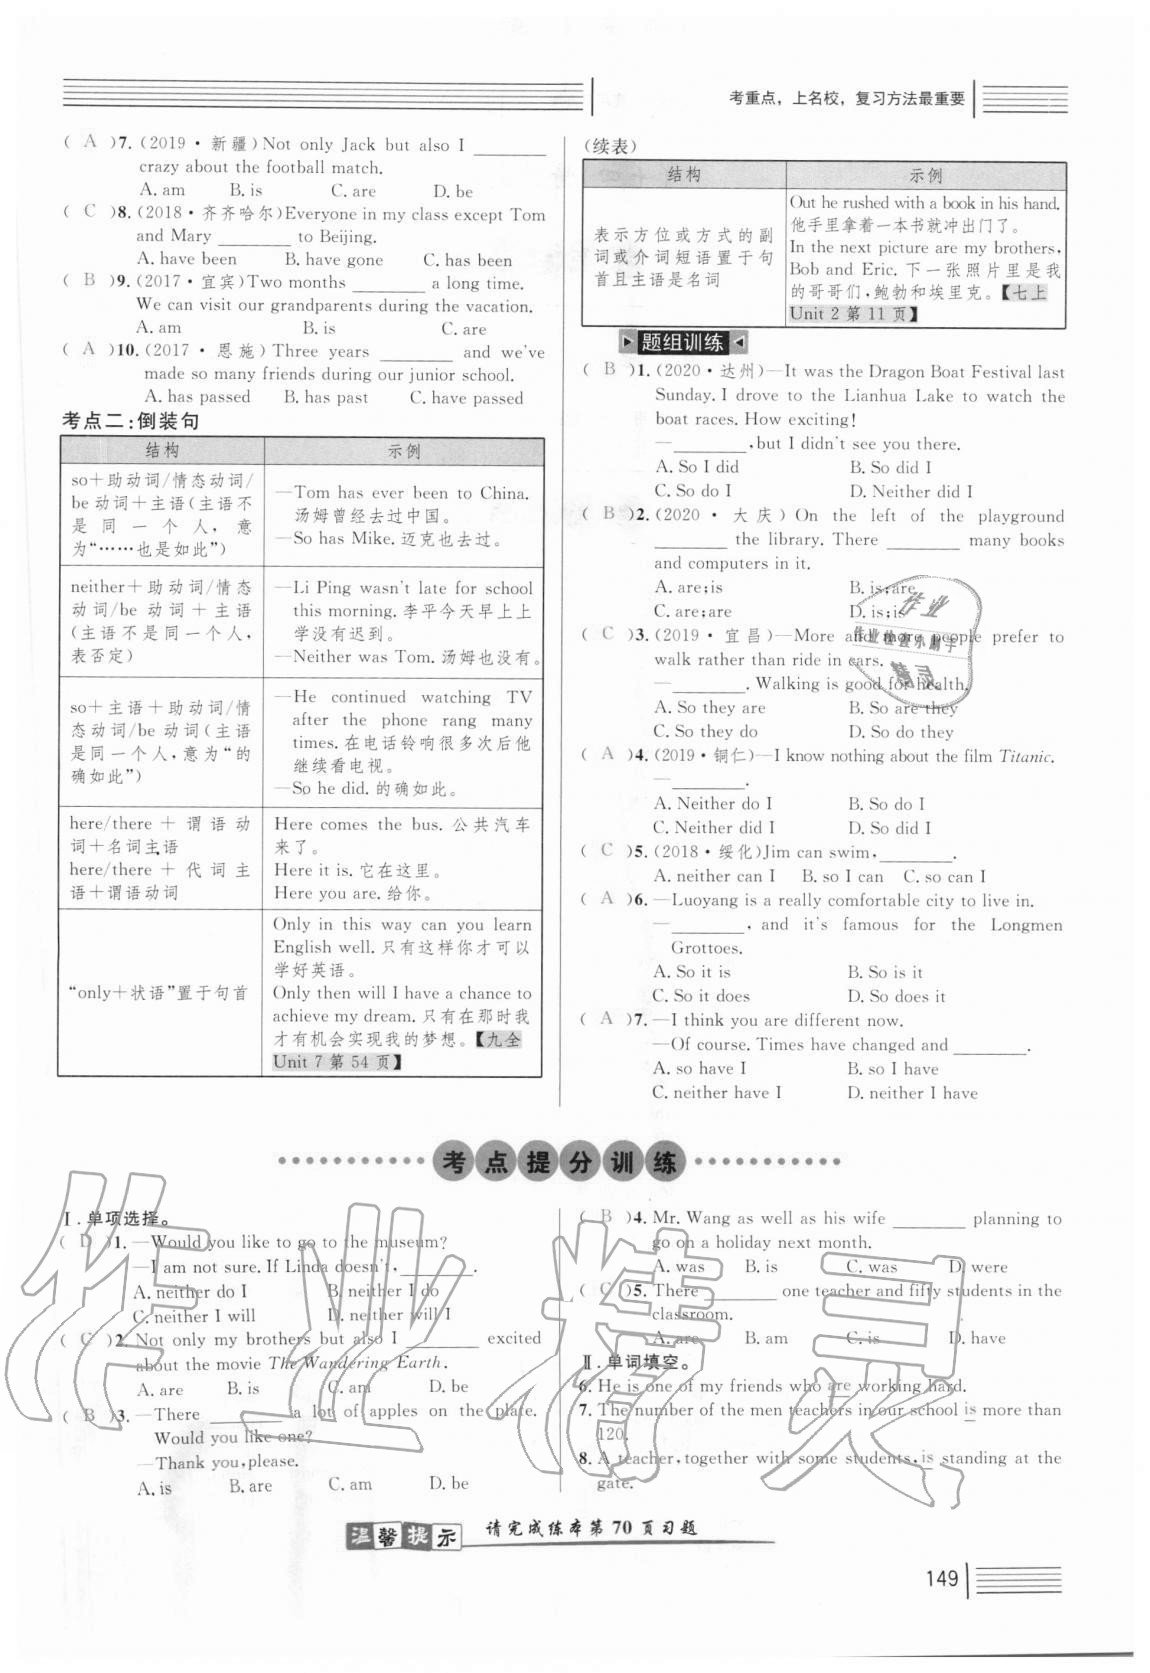 考重点，上名校，复习方法最重要
( A )7.(2019·新疆)Not only Jack but also I ________
crazy about the football match.
A. am B. is C. are D. be
( C )8.(2018·齐齐哈尔)Everyone in my class except Tom
and Mary ________ to Beijing.
A. have been B. have gone C. has been
( B )9.(2017·宜宾)Two months ________ a long time.
We can visit our grandparents during the vacation.
A. am B. is C. are
( A )10.(2017·恩施)Three years ________ and we've
made so many friends during our junior school.
A. has passed B. has past C. have passed
考点二:倒装句
结构 示例
so＋助动词/情态动词/
be动词＋主语(主语不
是同一个人,意
为“……也是如此”)
—Tom has ever been to China.
汤姆曾经去过中国。
—So has Mike. 迈克也去过。
neither＋助动词/情态
动词/be动词＋主语
(主语不是同一个人,
表否定)
—Li Ping wasn't late for school
this morning. 李平今天早上上
学没有迟到。
—Neither was Tom. 汤姆也没有。
so＋主语＋助动词/情
态动词/be动词(主语
是同一个人,意为“的
确如此”)
—He continued watching TV
after the phone rang many
times. 在电话铃响很多次后他
继续看电视。
—So he did. 的确如此。
here/there＋谓语动
词＋名词主语
here/there＋代词主
语＋谓语动词
Here comes the bus. 公共汽车
来了。
Here it is. 它在这里。
Here you are. 给你。
“only＋状语”置于句首
Only in this way can you learn
English well. 只有这样你才可以
学好英语。
Only then will I have a chance to
achieve my dream. 只有在那时我
才有机会实现我的梦想。【九全
Unit 7 第 54 页】
(续表)
结构 示例
表示方位或方式的副
词或介词短语置于句
首且主语是名词
Out he rushed with a book in his hand.
他手里拿着一本书就冲出门了。
In the next picture are my brothers,
Bob and Eric. 下一张照片里是我
的哥哥们,鲍勃和埃里克。【七上
Unit 2 第 11 页】
题组训练
( B )1.(2020·达州)—It was the Dragon Boat Festival last
Sunday. I drove to the Lianhua Lake to watch the
boat races. How exciting!
—________, but I didn't see you there.
A. So I did B. So did I
C. So do I D. Neither did I
( B )2.(2020·大庆)On the left of the playground
________ the library. There ________ many books
and computers in it.
A. are;is B. is;are
C. are;are D. is;is
( C )3.(2019·宜昌)—More and more people prefer to
walk rather than ride in cars.
—________. Walking is good for health.
A. So they are B. So are they
C. So they do D. So do they
( A )4.(2019·铜仁)—I know nothing about the film Titanic.
—________.
A. Neither do I B. So do I
C. Neither did I D. So did I
( C )5.(2018·绥化)Jim can swim, ________.
A. neither can I B. so I can C. so can I
( A )6.—Luoyang is a really comfortable city to live in.
—________, and it's famous for the Longmen
Grottoes.
A. So it is B. So is it
C. So it does D. So does it
( A )7.—I think you are different now.
—Of course. Times have changed and ________.
A. so have I B. so I have
C. neither have I D. neither I have
考点提分训练
Ⅰ.单项选择。
( D )1.—Would you like to go to the museum?
—I am not sure. If Linda doesn't, ________.
A. neither do I B. neither I do
C. neither I will D. neither will I
( C )2. Not only my brothers but also I ________ excited
about the movie The Wandering Earth.
A. are B. is C. am D. be
( B )3.—There ________ a lot of apples on the plate.
Would you like one?
—Thank you, please.
A. is B. are C. am D. be
( B )4. Mr. Wang as well as his wife ________ planning to
go on a holiday next month.
A. was B. is C. was D. were
( C )5. There ________ one teacher and fifty students in the
classroom.
A. are B. am C. is D. have
Ⅱ.单词填空。
6. He is one of my friends who are working hard.
7. The number of the men teachers in our school is more than
120.
8. A teacher, together with some students, is standing at the
gate.
温馨提示 请完成练本第 70 页习题
149
作业精灵
作业
作业检查小助手
精灵